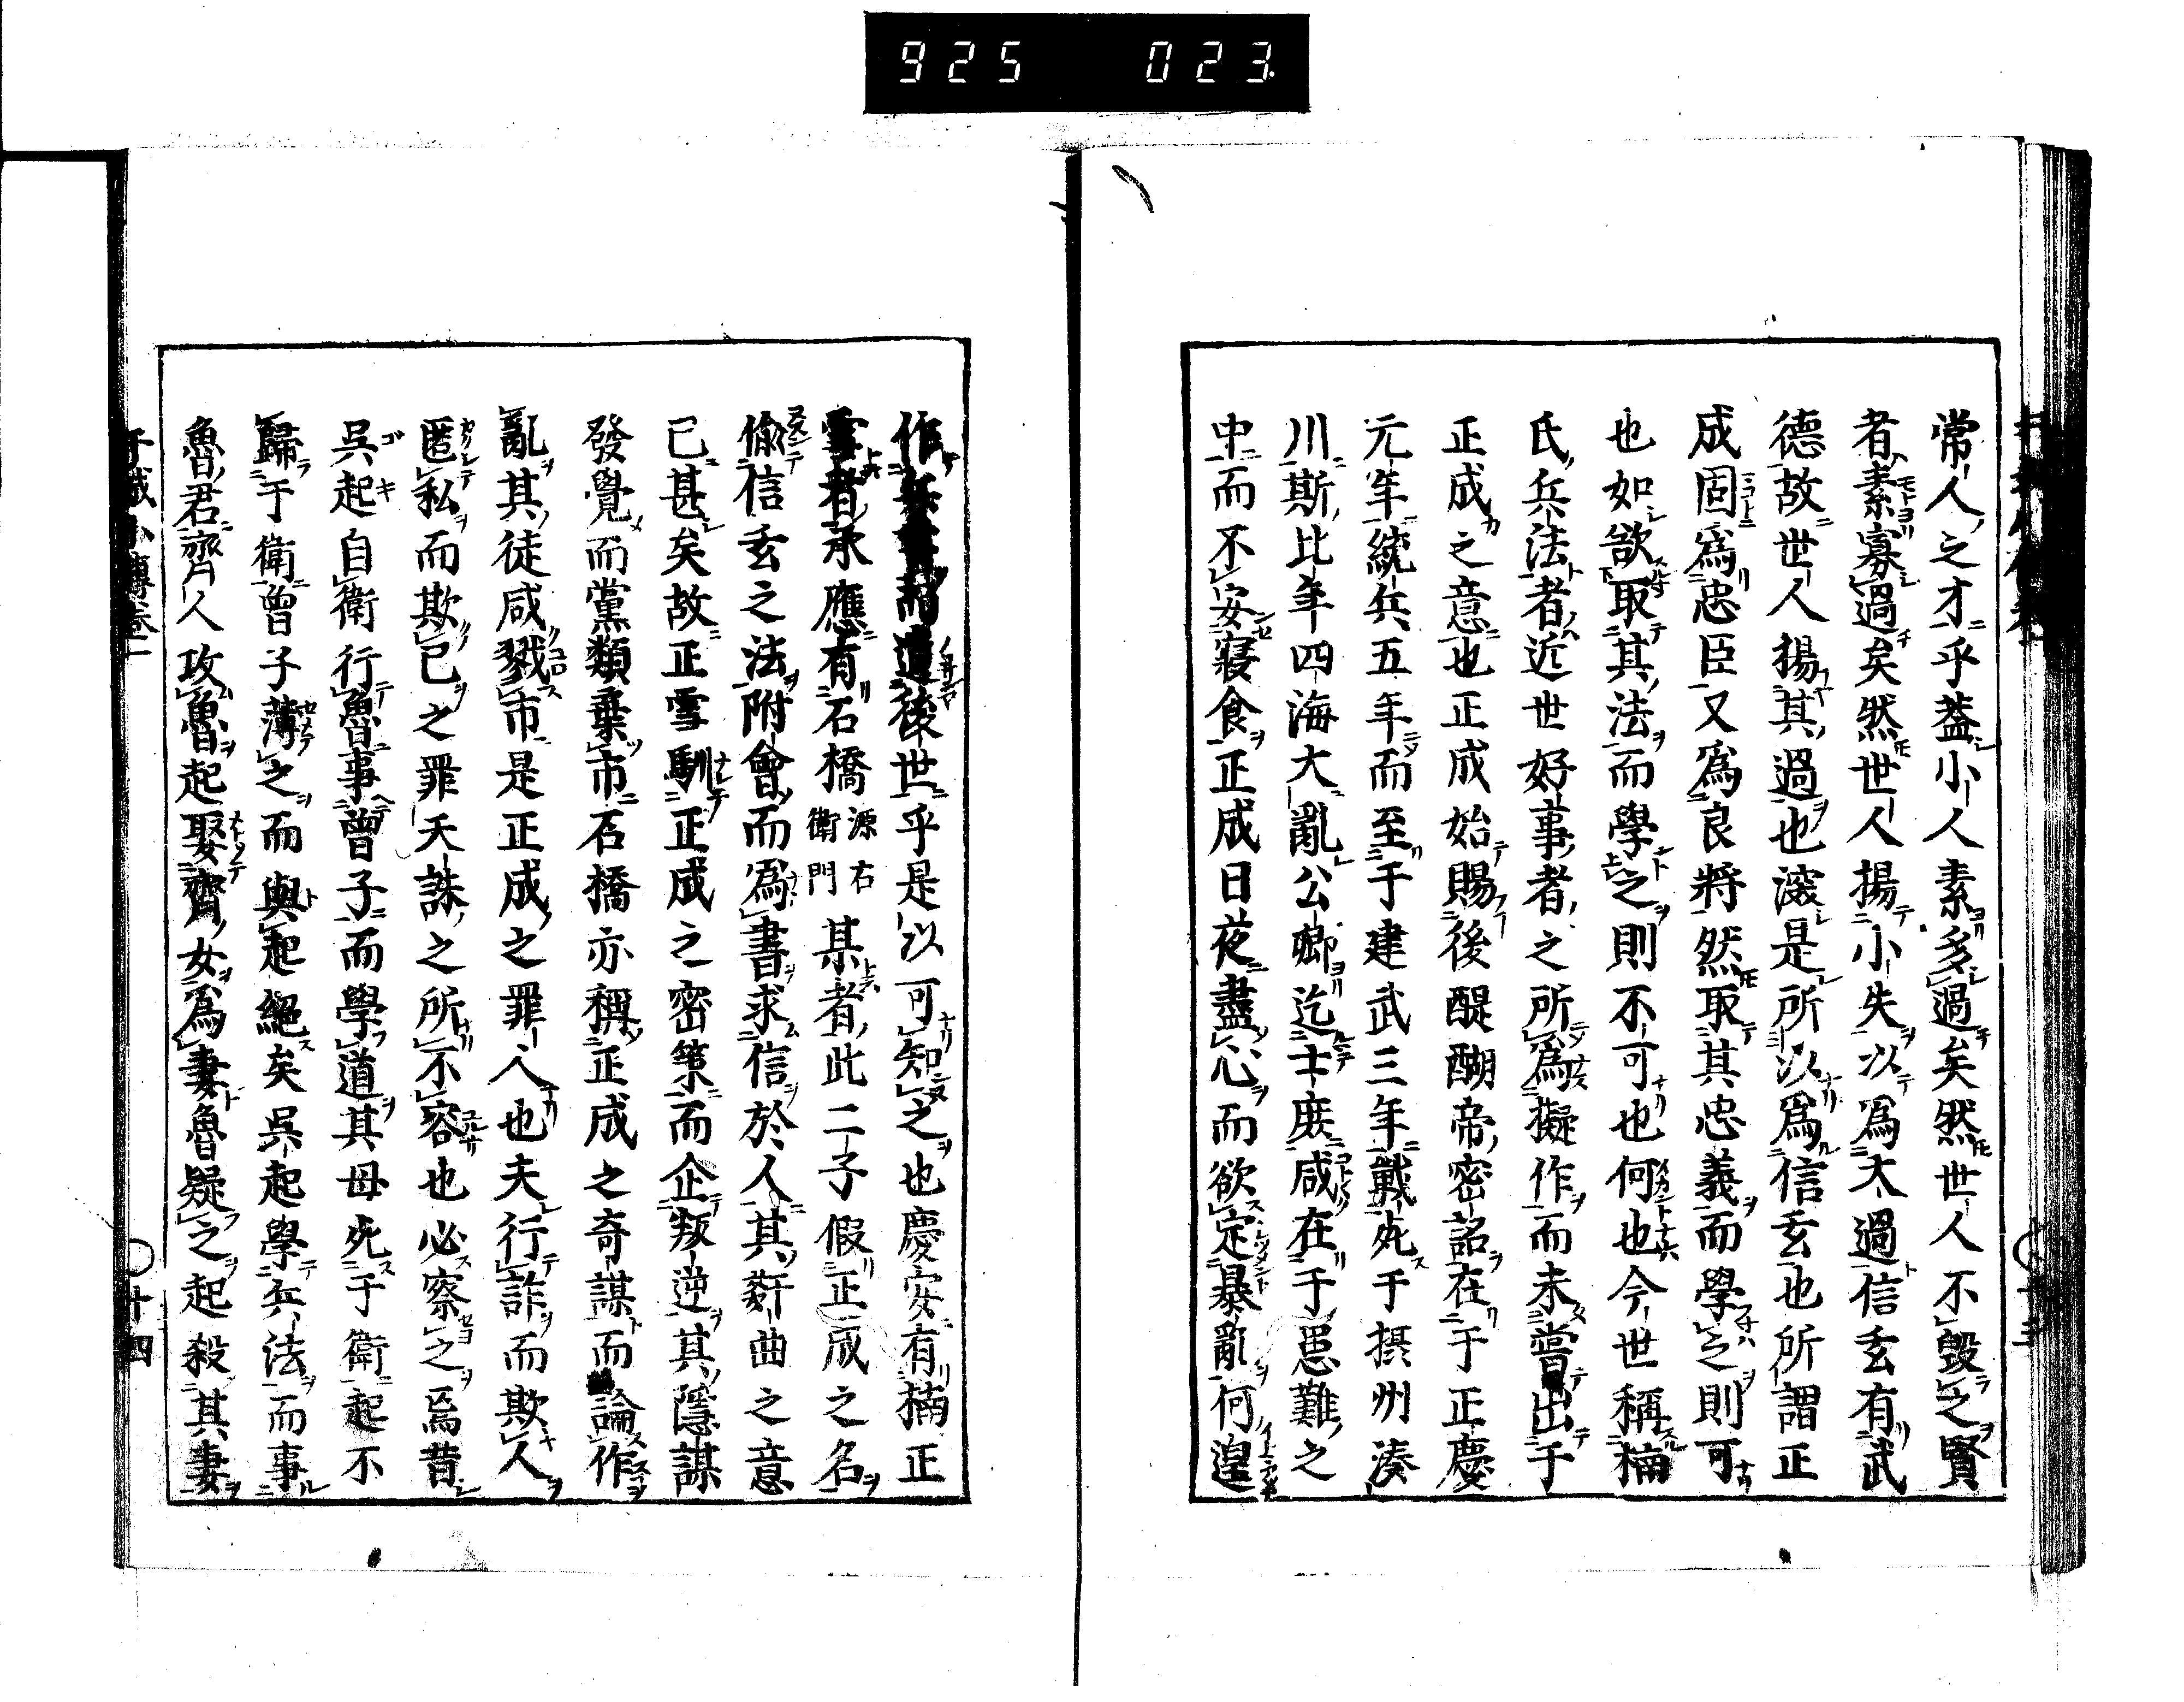 925 023
常人之才乎蓋小人素多過矣然世人不毀之賢
者素寡過矣然世人揚小失以為大過信玄有武
德故世人揚其過也滚是所以為信玄也所謂正
成固為忠臣又為良將然取其忠義而學之則可
也如欲取其法而學之則不可也何也今世稱楠
氏兵法者近世好事者之所為擬作而未嘗出于
正成之意也正成始賜後醍醐帝密詔在于正慶
元年統兵五年而至于建武三年戰死于摂州湊
川斯比年四海大亂公卿迄士庶咸在于患難之
中而不安寢食正成日夜盡心而欲定暴亂何遑
作兵書而遺後世乎是以可知之也慶安有楠正
雪者承應有石橋源右衛門某者此二子假正成之名
偷信玄之法附會而為書求信於人其姧曲之意
已甚矣故正雪馴正成之密策而企叛逆其隱謀
發覺而黨類棄市石橋亦稱正成之奇謀而論作
亂其徒咸戮市是正成之罪人也夫行詐而欺人
匿私而欺己之罪天誅之所不容也必察之焉昔
吳起自衛行魯事曾子而學道其母死于衛起不
歸于衛曾子薄之而與起絕矣吳起學兵法而事
魯君齊人攻魯起娶齊女為妻魯疑之起殺其妻
十四